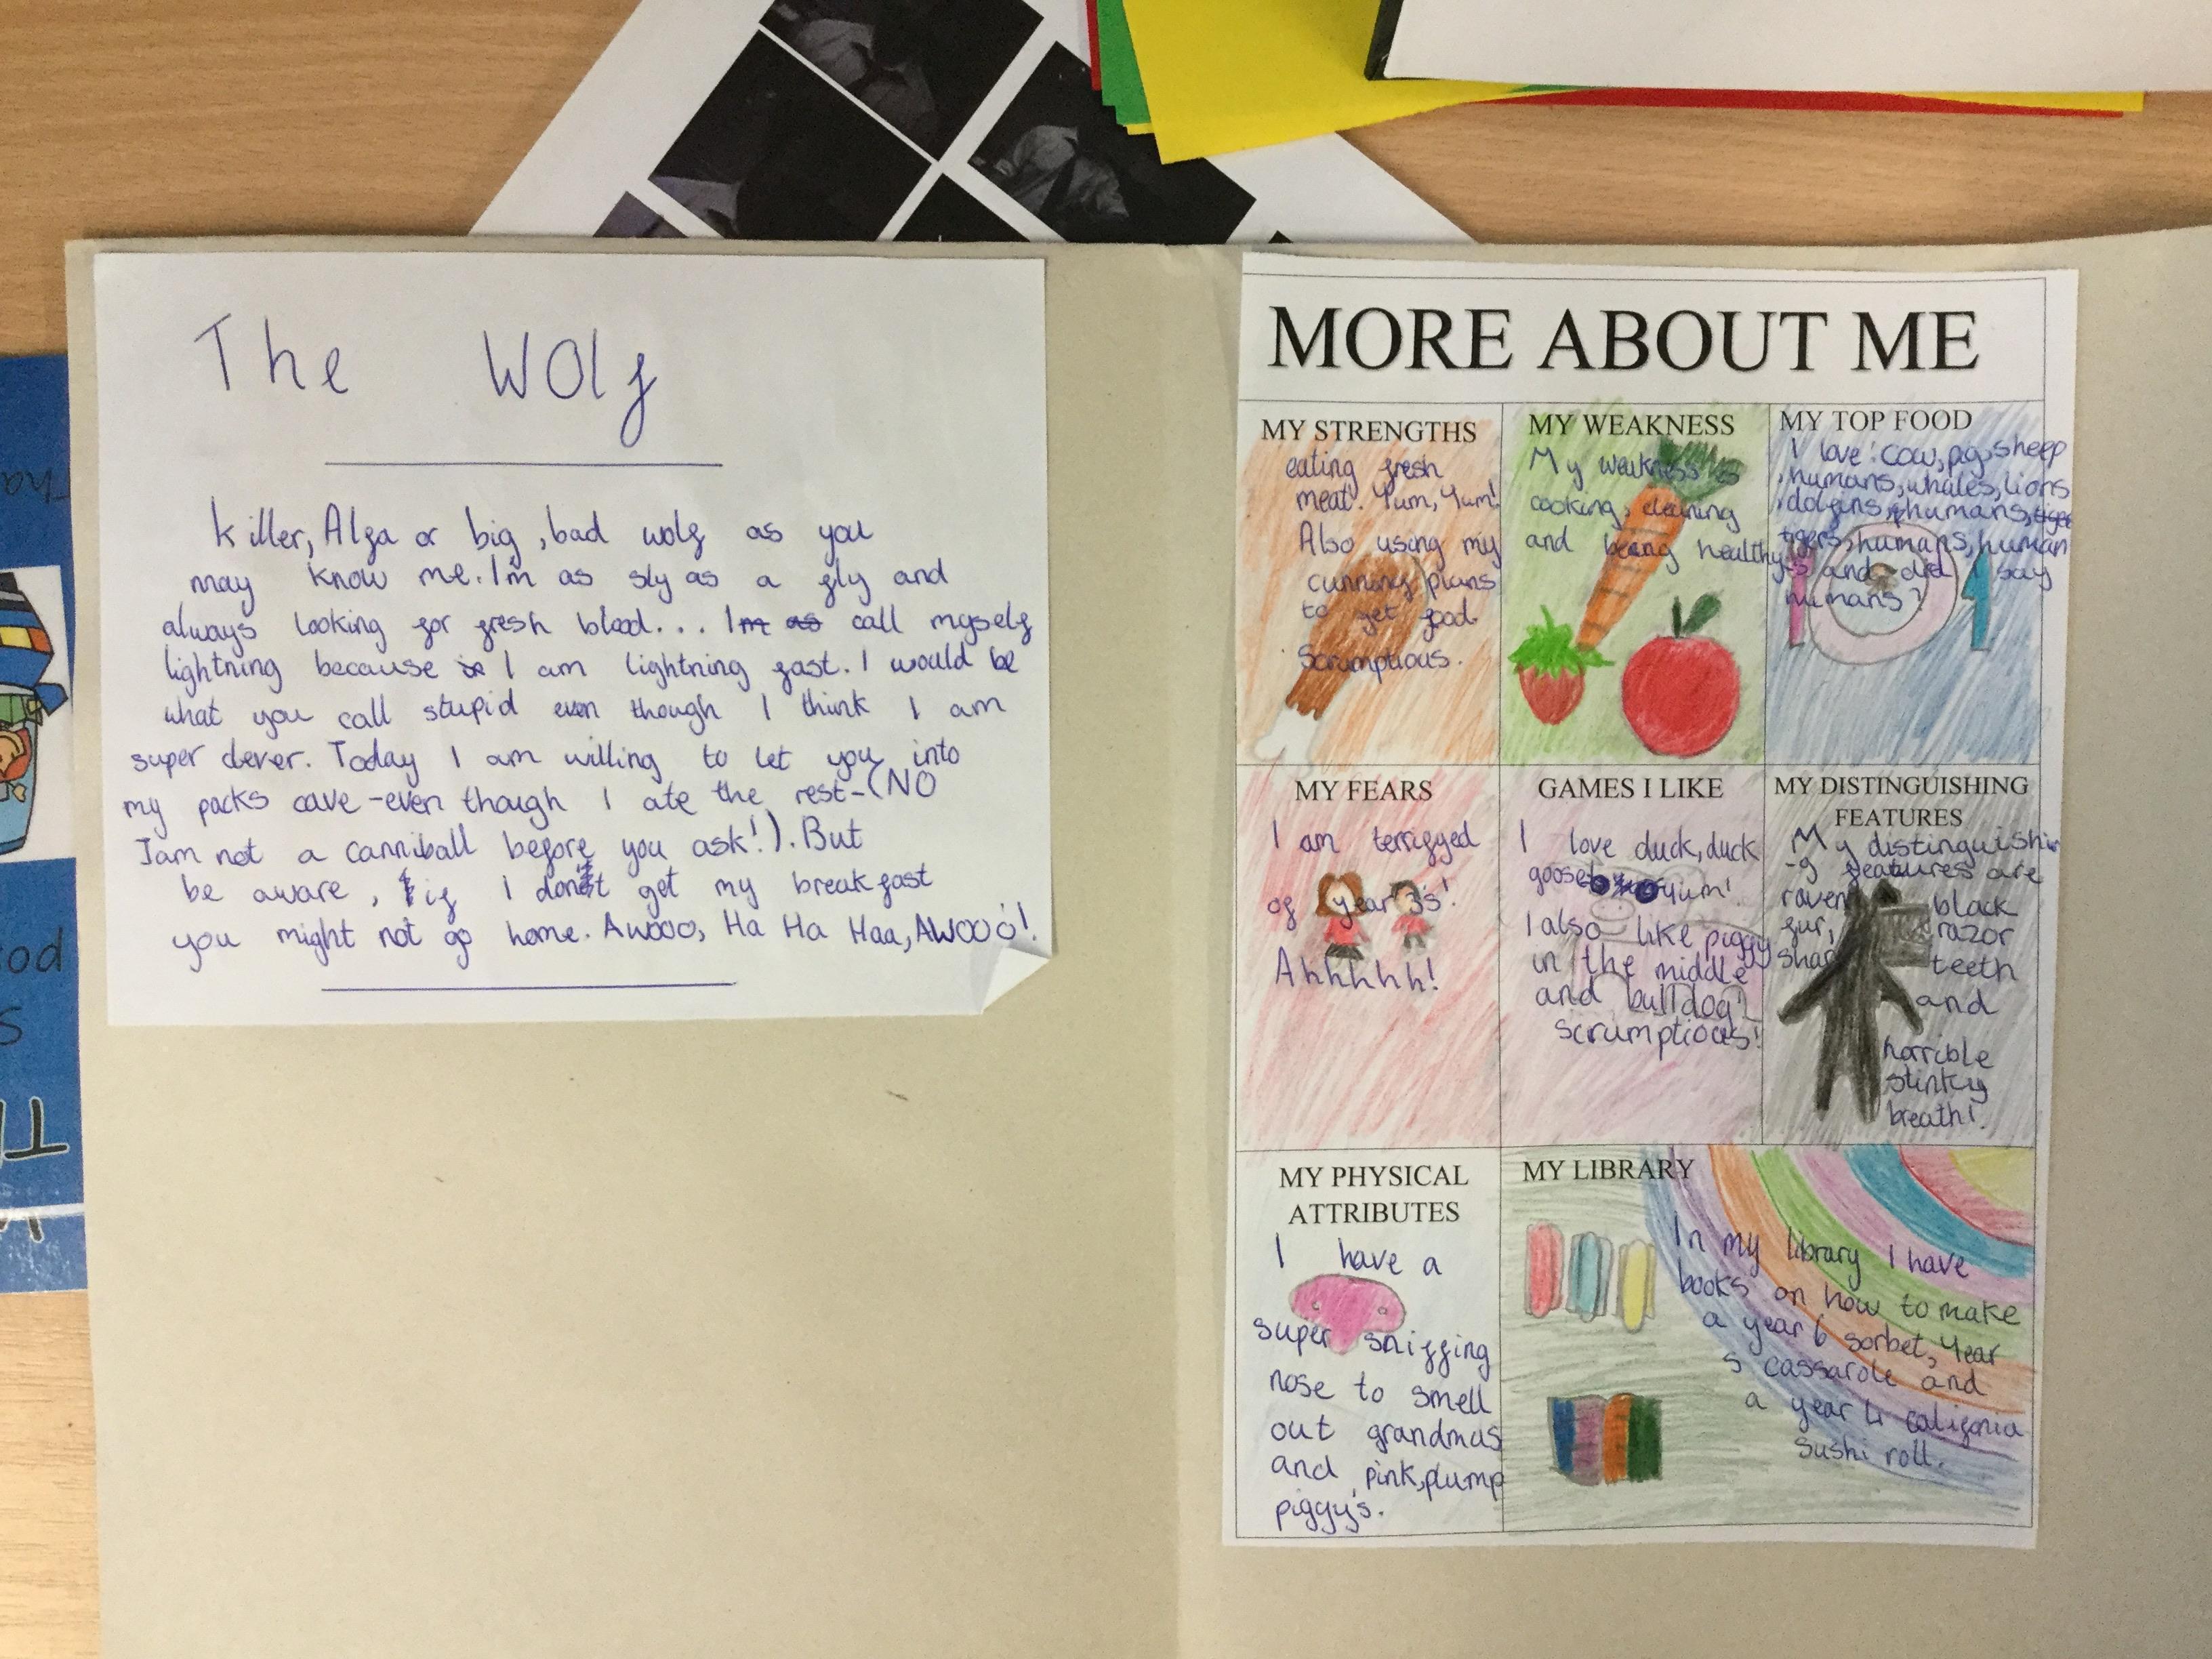 The Wolf
Killer, Alfa or big, bad wolf as you
may know me. I'm as sly as a fly and
always looking for fresh blood... Im as call myself
lightning because I am lightning fast. I would be
what you call stupid even though I think I am
super clever. Today I am willing to let you into
my packs cave - even though I ate the rest - (NO
I am not a canniball before you ask!). But
be aware, if I don't get my breakfast
you might not go home. Awooo, Ha Ha Haa, AWOOO!
MORE ABOUT ME
MY STRENGTHS
eating fresh
meat. Yum, Yum!
Also using my
cunning plans
to get food.
Scrumptious.
MY WEAKNESS
My weakness is
cooking, cleaning
and being healthy
MY TOP FOOD
I love: cow, pig, sheep
, humans, whales, lions
, dolfins, humans, tiges
tigers, humans, human
-s and did I say
humans?
MY FEARS
I am terrifyed
of year 3's!
Ahhhhh!
GAMES I LIKE
I love duck, duck
goose yum!
I also like piggy
in the middle
and bulldog!
scrumptious!
MY DISTINGUISHING
FEATURES
My distinguishin
-g features are
raven black
fur, razor
shar teeth
and
horrible
stinky
breath!
MY PHYSICAL
ATTRIBUTES
I have a
super sniffing
nose to smell
out grandmas
and pink, plump
piggy's.
MY LIBRARY
In my library I have
books on how to make
a year 6 sorbet, Year
5 cassarole and
a year 4 califonia
sushi roll.